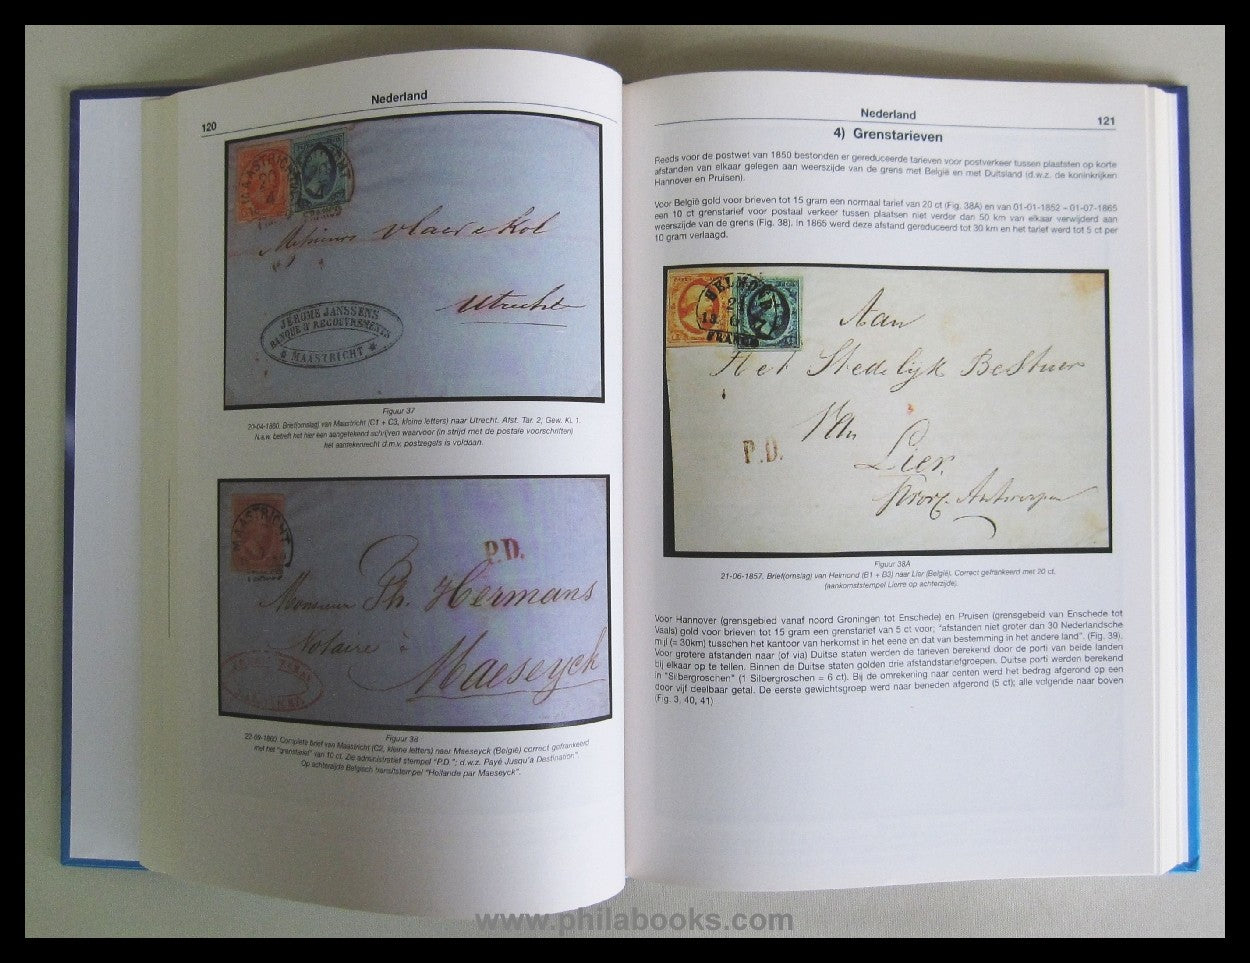 Nederland
120
MAASTRICHT
FRANCO
Utrecht
JEROME JANSSENS
BANQUE & RECOUVREMENTS
MAASTRICHT
Figuur 37
20-04-1860. Brief(omslag) van Maastricht (C1 + C3, kleine letters) naar Utrecht. Afst. Tar. 2; Gew. Kl. 1.
N.a.w. betreft het hier een aangetekend schrijven waarvoor (in strijd met de postale voorschriften)
het aantekenrecht d.m.v. postzegels is voldaan.
MAASTRICHT
P.D.
Monsieur Ph. Hermans
Notaire à
Maeseyck
Figuur 38
22-09-1860 Complete brief van Maastricht (C2, kleine letters) naar Maeseyck (België) correct gefrankeerd
met het "grenstarief" van 10 ct. Zie administratief stempel "P.D."; d.w.z. Payé Jusqu'a Destination".
Op achterzijde Belgisch transitstempel "Hollande par Maeseyck".
Nederland
121
4) Grenstarieven
Reeds voor de postwet van 1850 bestonden er gereduceerde tarieven voor postverkeer tussen plaatsten op korte
afstanden van elkaar gelegen aan weerszijde van de grens met België en met Duitsland (d.w.z. de koninkrijken
Hannover en Pruisen).
Voor België gold voor brieven tot 15 gram een normaal tarief van 20 ct (Fig. 38A) en van 01-01-1852 – 01-07-1865
een 10 ct grenstarief voor postaal verkeer tussen plaatsen niet verder dan 50 km van elkaar verwijderd aan
weerszijde van de grens (Fig. 38). In 1865 werd deze afstand gereduceerd tot 30 km en het tarief werd tot 5 ct per
10 gram verlaagd.
HELMOND
FRANCO
Aan
Het Stedelijk Bestuur
Van
P.D.
Lier.
Prov. Antwerpen
Figuur 38A
21-06-1857. Brief(omslag) van Helmond (B1 + B3) naar Lier (België). Correct gefrankeerd met 20 ct.
(aankomststempel Lierre op achterzijde).
Voor Hannover (grensgebied vanaf noord Groningen tot Enschede) en Pruisen (grensgebied van Enschede tot
Vaals) gold voor brieven tot 15 gram een grenstarief van 5 ct voor; "afstanden niet groter dan 30 Nederlandsche
mijl (= 30km) tusschen het kantoor van herkomst in het eene en dat van bestemming in het andere land". (Fig. 39).
Voor grotere afstanden naar (of via) Duitse staten werden de tarieven berekend door de porti van beide landen
bij elkaar op te tellen. Binnen de Duitse staten golden drie afstandstariefgroepen. Duitse porti werden berekend
in "Silbergroschen" (1 Silbergroschen = 6 ct). Bij de omrekening naar centen werd het bedrag afgerond op een
door vijf deelbaar getal. De eerste gewichtsgroep werd naar beneden afgerond (5 ct); alle volgende naar boven
(Fig. 3, 40, 41)
www.philabooks.com